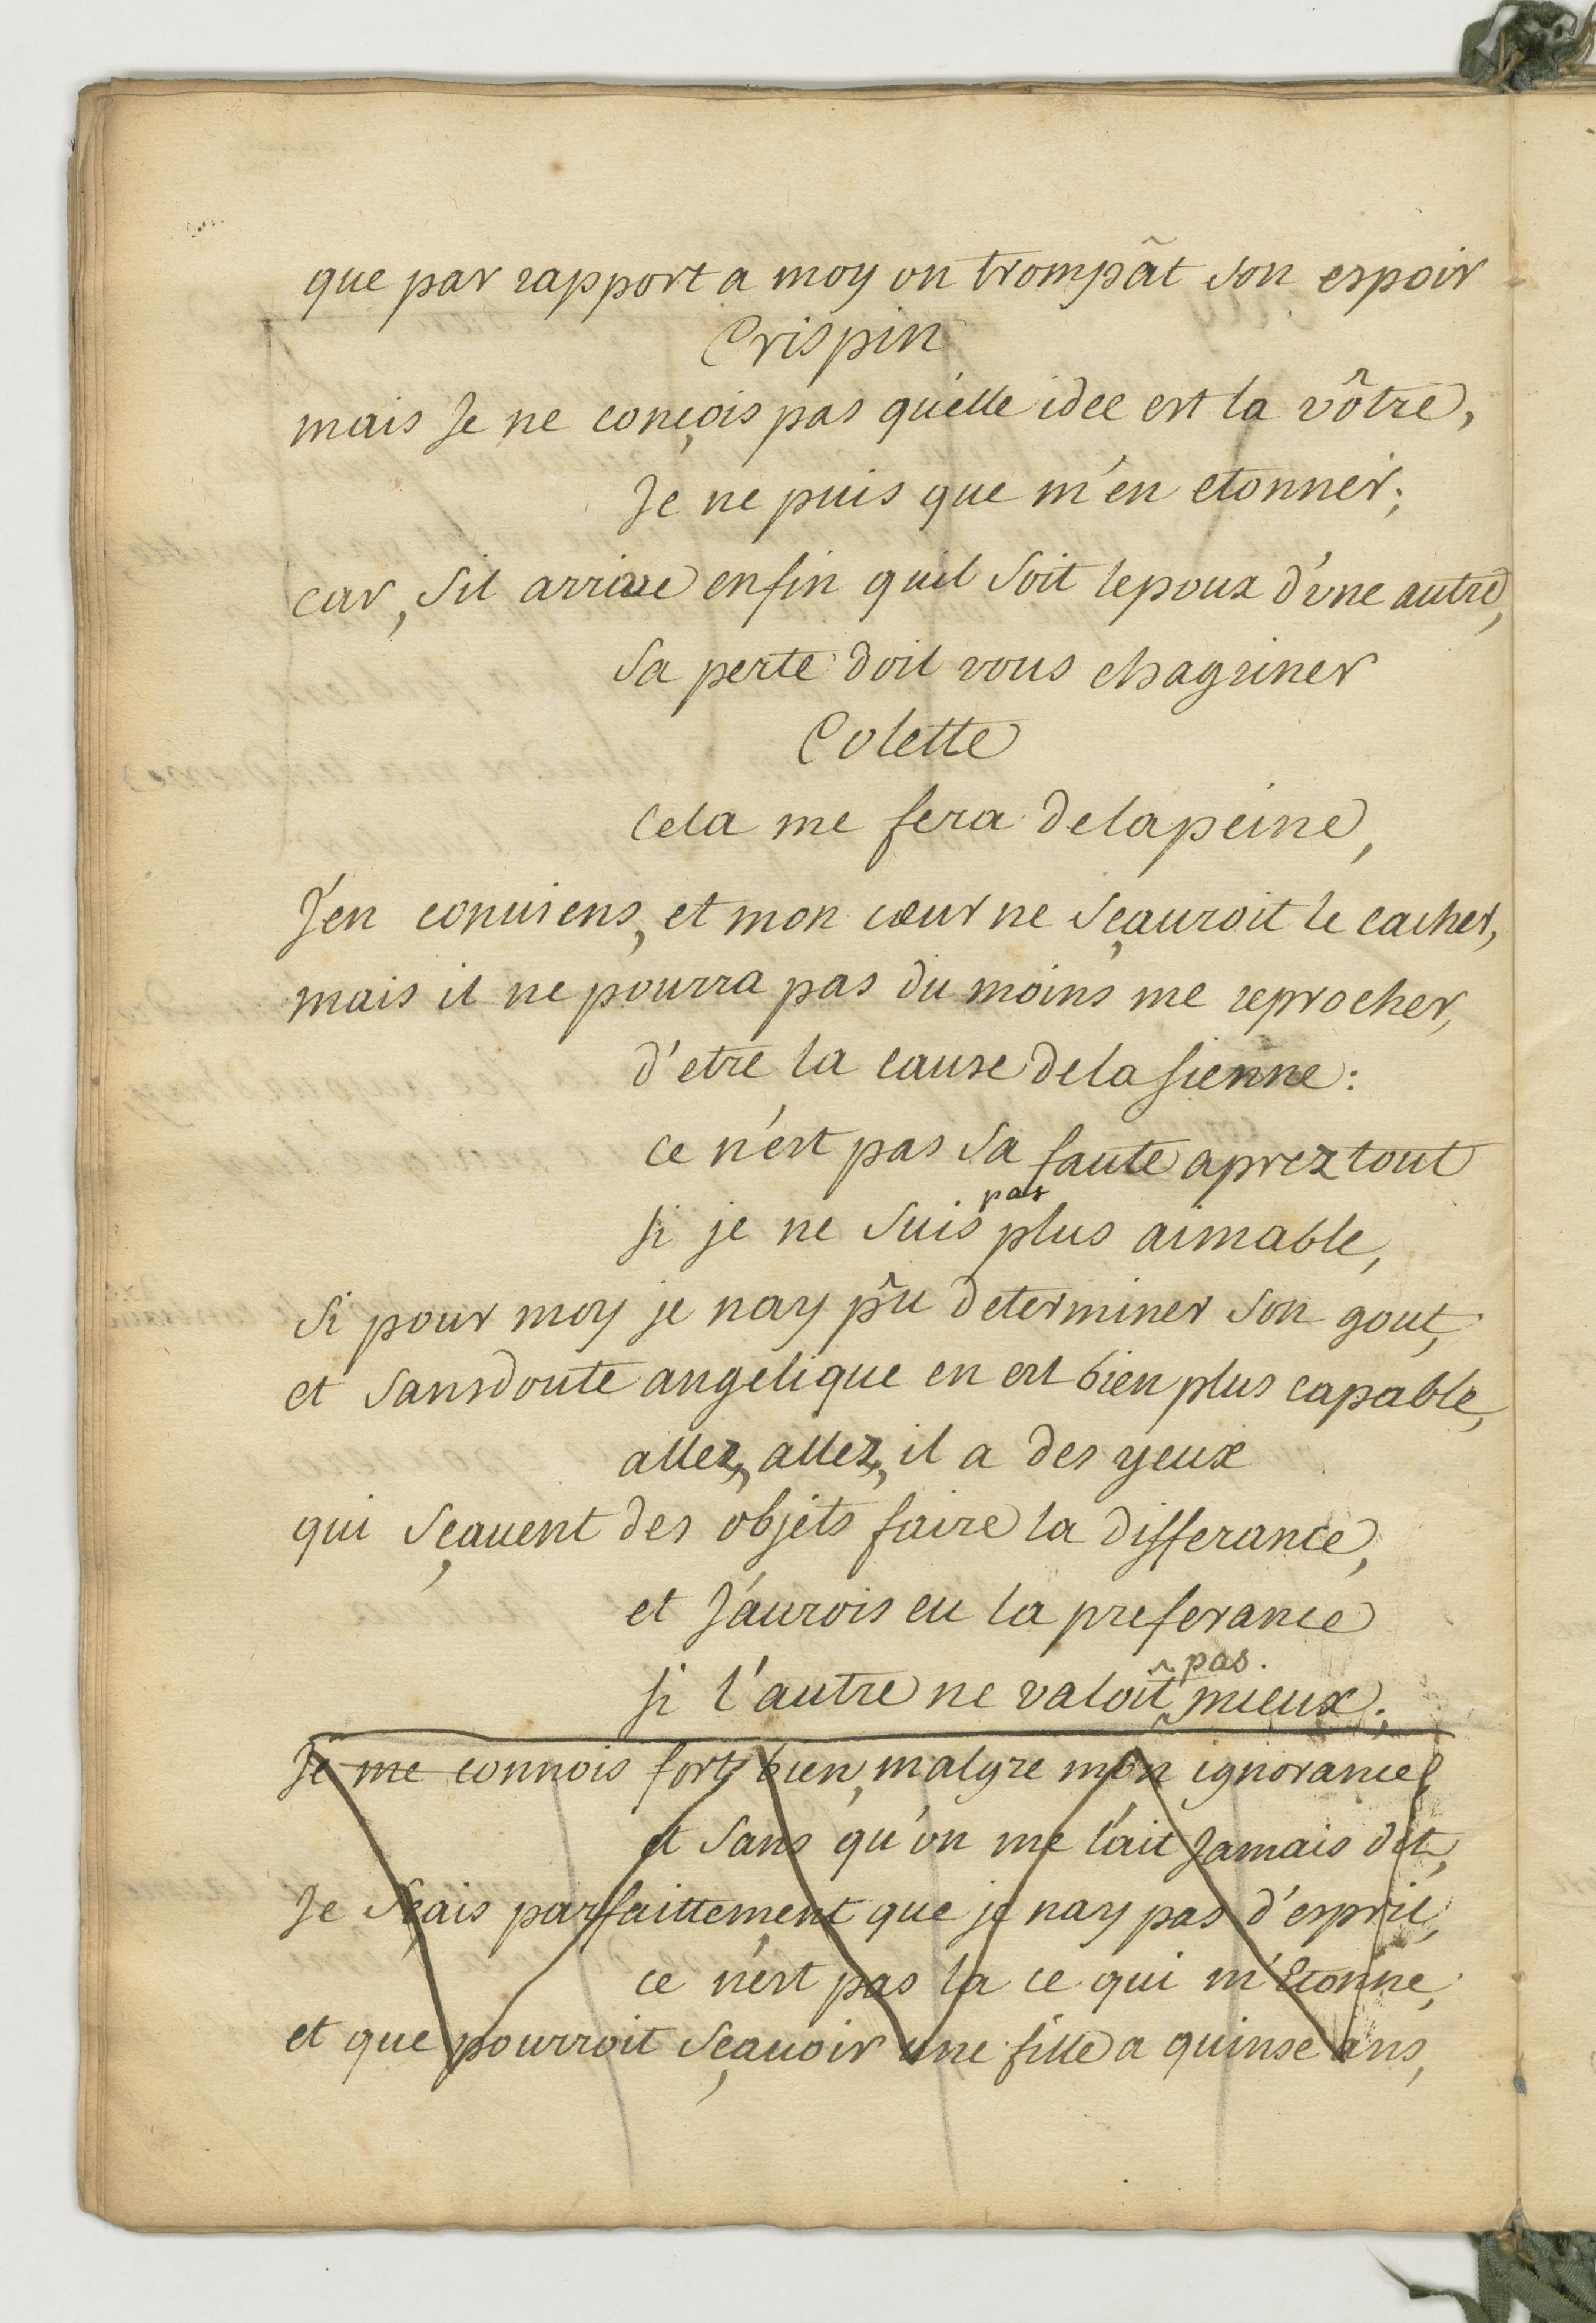 que par rapport a moy on trompât son espoir
Crispin
mais Je ne conçois pas qu'elle idee est la vôtre,
Je ne puis que m'en etonner;
car, sil arrive enfin quil soit lepoux d'vne autre,
sa perte doit vous chagriner
Colette
Cela me fera delapeine,
J'en conuiens, et mon cœur ne sçauroit le cacher,
mais il ne pourra pas du moins me reprocher,
d'etre la cause dela sienne:
ce n'est pas sa faute aprez tout
si je ne suis pas plus aimable,
si pour moy je nay pû determiner son gout,
et sansdoute angelique en est bien plus capable,
allez, allez, il a des yeux
qui sçauent des objets faire la differance,
et J'aurois eu la preferance
si l'autre ne valoit pas mieux;
Je me connois fort bien, malgre mon ignorance,
et sans qu'on me l'ait Jamais dit,
Je sçais parfaittement que je nay pas d'esprit,
ce n'est pas la ce qui m'étonne,
et que pourroit sçauoir une fille a quinse ans,